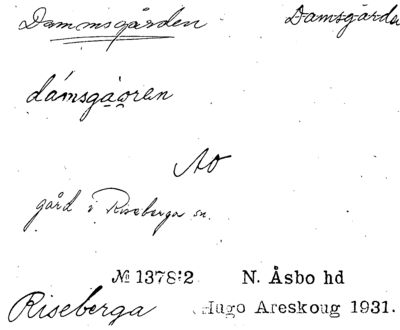 Dammsgården Damsgården
dámsgạọren
Ao
gård i Riseberga sn.
№ 13782 N. Åsbo hd
Riseberga Hugo Areskoug 1931.